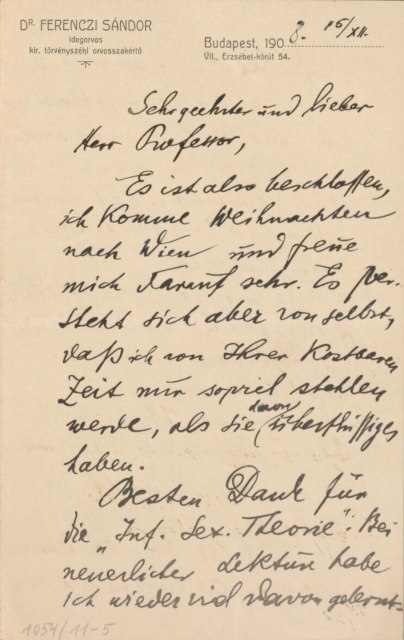 DR. FERENCZI SÁNDOR
idegorvos
kir. törvényszéki orvosszakértő
Budapest, 1908. 15/XII.
VII., Erzsébet-körút 54.
Sehr geehrter und lieber
Herr Professor,
Es ist also beschlossen,
ich komme Weihnachten
nach Wien und freue
mich darauf sehr. Es ver-
steht sich aber von selbst,
daß ich von Ihrer kostbaren
Zeit nur soviel stehlen
werde, als Sie davon überflüssiges
haben.
Besten Dank für
die „Inf. Sex. Theorie". Bei
neuerlicher Lektüre habe
ich wieder viel davon gelernt.
1054/11-5